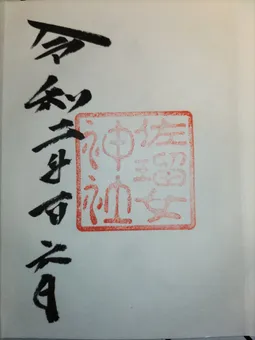 令和二年一月六日
佐瑠女
神社